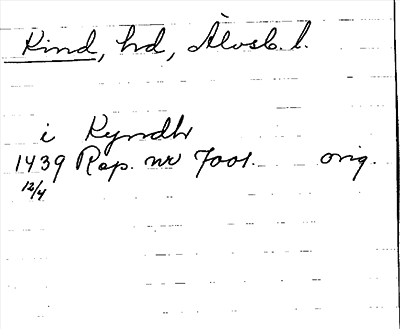 Kind, hd, Älvsb. l.
i Kyndh
1439 Rap. nr 7001. orig.
12/4